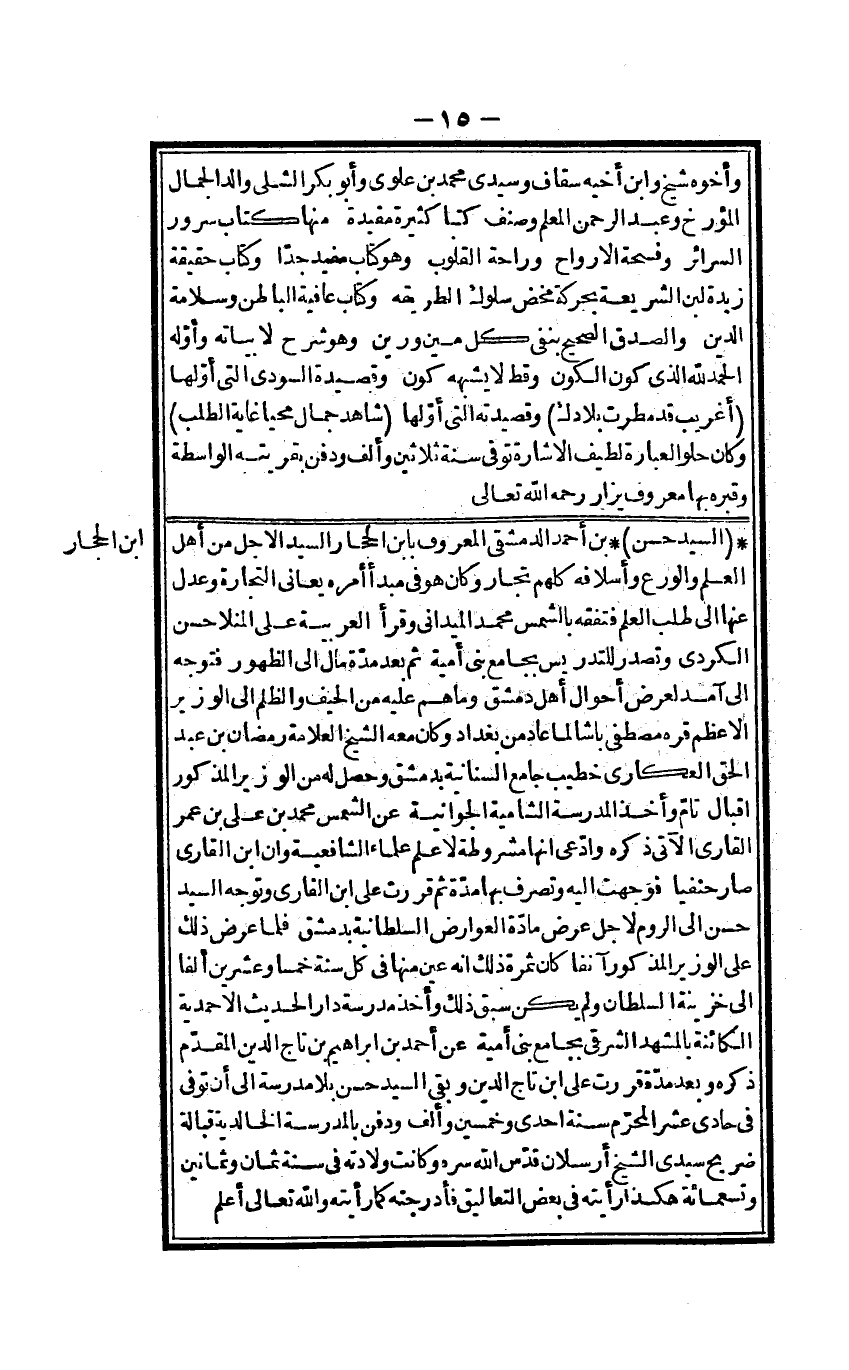 — ١٥ —
وأخوه شيخ وابن أخيه سقاف وسيدى محمد بن علوى وأبو بكر الشلى والد الجمال
المؤرخ وعبد الرحمن المعلم وصنف كتبا كثيرة مفيدة منها كتاب سرور
السرائر وفسحة الارواح وراحة القلوب وهو كتاب مفيد جدّا وكتاب حقيقة
زبدة لبن الشريعة بحركة مخض سلوك الطريقه وكتاب عافية الباطن وسلامة
الدين والصدق الصحيح بنفى كل مين ورين وهو شرح لابياته وأوّله
الحمد لله الذى كون الكون وقط لا يشبهه كون وقصيدة السودى التى أوّلها
(أغريب قد مطرت بلادك) وقصيدته التى أوّلها (شاهد جمال محيا غاية الطلب)
وكان حلو العبارة لطيف الاشارة توفى سنة ثلاثين وألف ودفن بقريته الواسطة
وقبره بها معروف يزار رحمه الله تعالى
ابن الحجار
*(السيد حسن)* بن أحمد الدمشقى المعروف بابن الحجار السيد الاجل من أهل
العلم والورع وأسلافه كلهم تجار وكان هو فى مبدأ أمره يعانى التجارة وعدل
عنها الى طلب العلم فتفقه بالشمس محمد الميدانى وقرأ العربية على المنلا حسن
الكردى وتصدر للتدريس بجامع بنى أمية ثم بعد مدّة مال الى الظهور فتوجه
الى آمد لعرض أحوال أهل دمشق وما هم عليه من الحيف والظلم الى الوزير
الاعظم قره مصطفى باشا لما عاد من بغداد وكان معه الشيخ العلامة رمضان بن عبد
الحق العكارى خطيب جامع السنانية بدمشق وحصل له من الوزير المذكور
اقبال تامّ وأخذ المدرسة الشامية الجوانية عن الشمس محمد بن على بن عمر
القارى الآتى ذكره وادّعى انها مشروطة لاعلم علماء الشافعية وان ابن القارى
صار حنفيا فوجهت اليه وتصرف بها مدّة ثم قررت على ابن القارى وتوجه السيد
حسن الى الروم لاجل عرض مادّة العوارض السلطانية بدمشق فلما عرض ذلك
على الوزير المذكور آنفا كان ثمرة ذلك انه عين منها فى كل سنة خمسا وعشرين ألفا
الى خزينة السلطان ولم يكن سبق ذلك وأخذ مدرسة دار الحديث الاحمدية
الكائنة بالمشهد الشرقى بجامع بنى أمية عن أحمد بن ابراهيم بن تاج الدين المقدّم
ذكره وبعد مدّة قررت على ابن تاج الدين وبقى السيد حسن بلا مدرسة الى أن توفى
فى حادى عشر المحرّم سنة احدى وخمسين وألف ودفن بالمدرسة الخالدية قبالة
ضريح سيدى الشيخ أرسلان قدّس الله سره وكانت ولادته فى سنة ثمان وثمانين
وتسعمائة هكذا رأيته فى بعض التعاليق فأدرجته كما رأيته والله تعالى أعلم